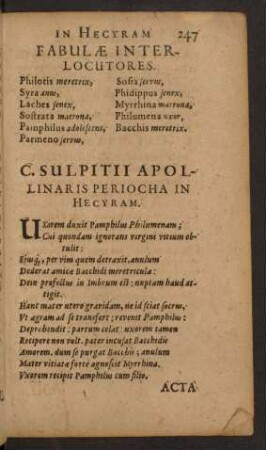 IN HECYRAM 247
FABULÆ INTER-
LOCUTORES.
Philotis meretrix,
Syra anus,
Laches senex,
Sostrata matrona,
Pamphilus adolescens,
Parmeno servus,
Sosia servus,
Phidippus senex,
Myrrhina matrona,
Philumena uxor,
Bacchis meretrix.
C. SULPITII APOL-
LINARIS PERIOCHA IN
HECYRAM.
UXorem duxit Pamphilus Philumenam;
Cui quondam ignorans virgini vitium ob-
tulit:
Ejusq́, per vim quem detraxit, anulum
Dederat amicæ Bacchidi meretriculæ:
Dein profectus in Imbrum est: nuptam haud at-
tigit.
Hanc mater utero gravidam, ne id sciat socrus,
Ut ægram ad se transfert; revenit Pamphilus:
Deprehendit: partum celat: uxorem tamen
Recipere non volt. pater incusat Bacchidis
Amorem. dum se purgat Bacchis; anulum
Mater vitiatæ forte agnoscit Myrrhina.
Uxorem recipit Pamphilus cum filio.
ACTA